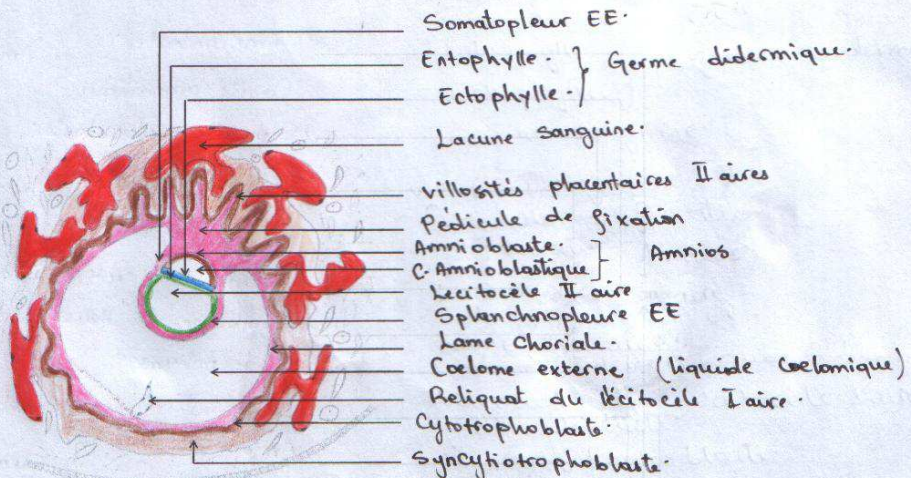 Somatopleur EE.
Entophylle. } Germe didermique.
Ectophylle.
Lacune sanguine.
villosités placentaires II aires
Pédicule de fixation
Amnioblaste. } Amnios
C. Amnioblastique
Lécitocèle II aire
Splanchnopleure EE
Lame choriale.
Coelome externe (liquide coelomique)
Reliquat du lécitocèle I aire.
Cytotrophoblaste.
Syncytiotrophoblaste.